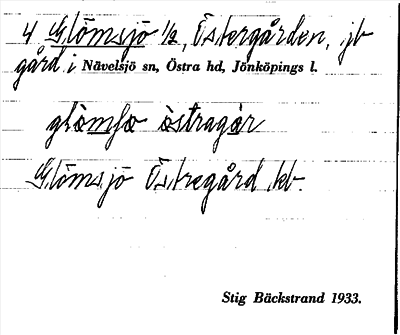 4 Glömsjö 1/2, Östergården, jb
gård i Nävelsjö sn, Östra hd, Jönköpings l.
glòmʃo òstragàr
Glömsjö Östregård kb.
Stig Bäckstrand 1933.